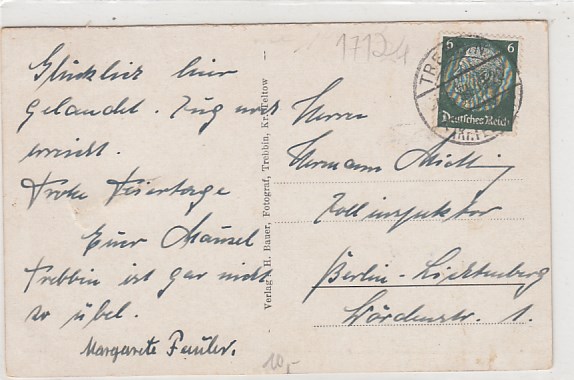 Glücklich hier
gelandet. Zug noch
erreicht.
Frohe Feiertage
Euer Mäusel
Trebbin ist gar nicht
so übel.
Margarete
Verlag H. Bauer, Fotograf, Trebbin, Kr. Teltow
17124
6 6
Deutsches Reich
TRE
Herrn
Hermann
Zollinspektor
Berlin-Lichtenberg
Wördenstr. 1.
10,-